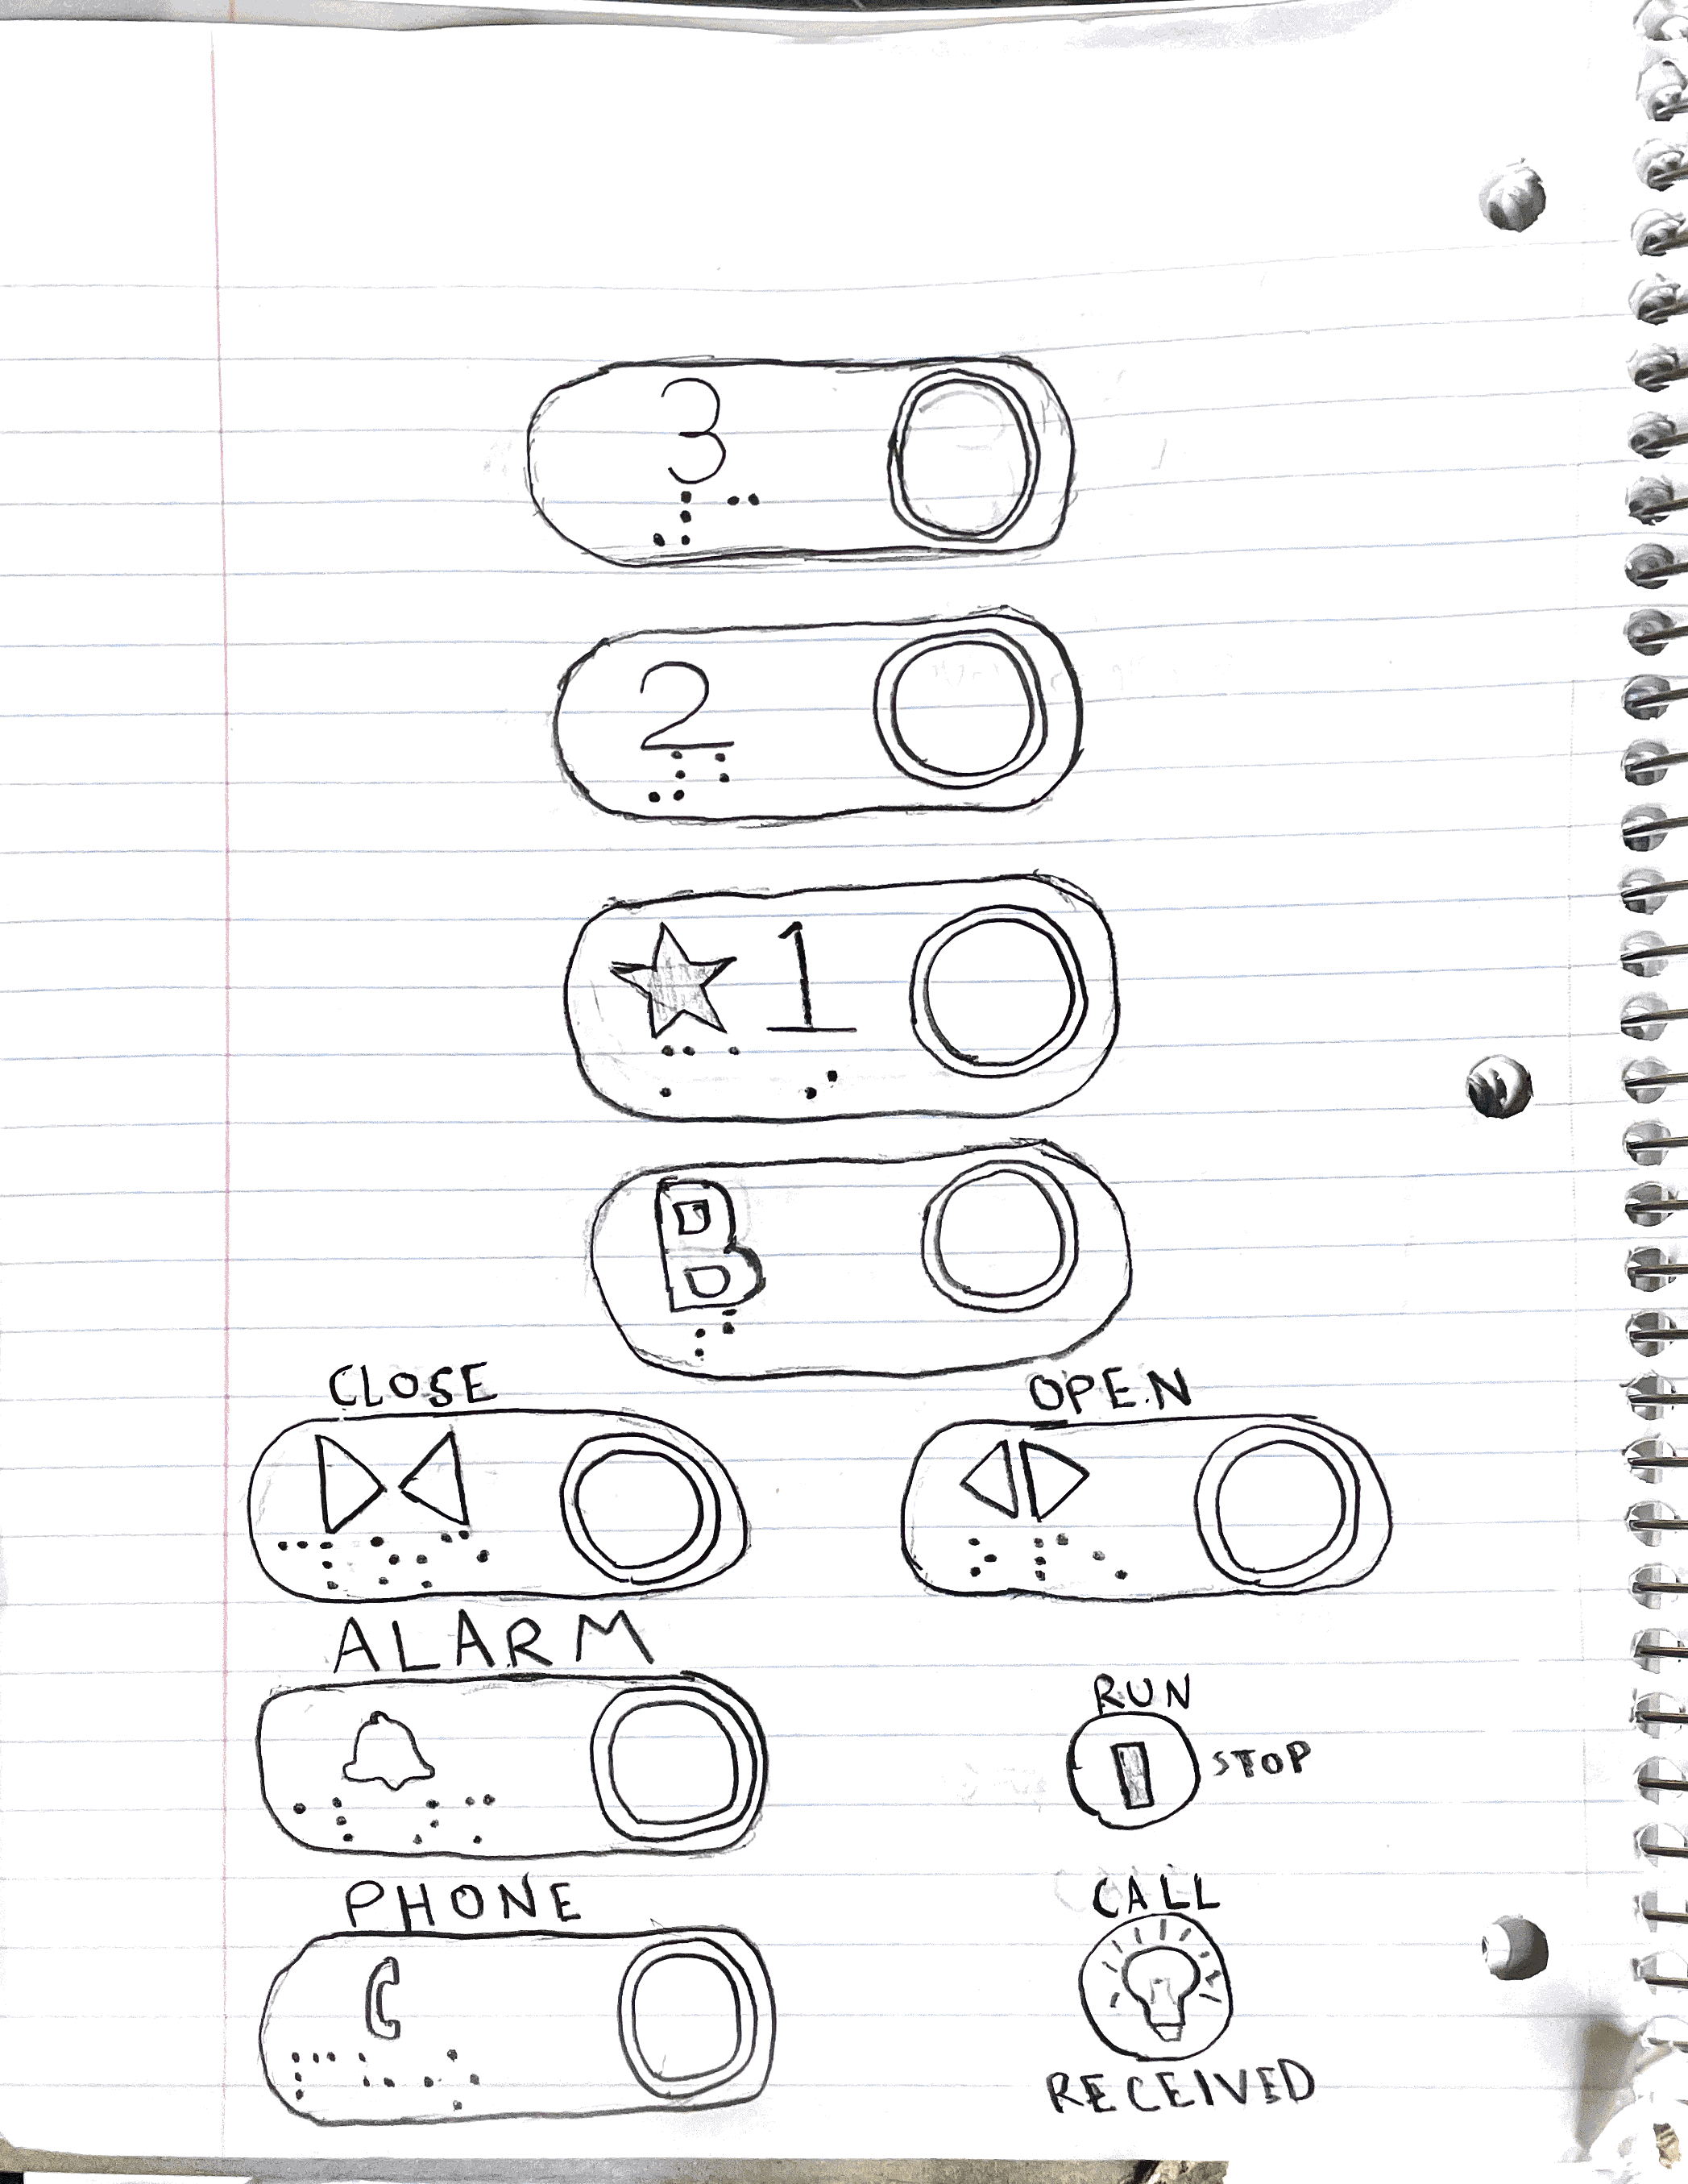 3
2
★ 1
B
CLOSE OPEN
ALARM
RUN
STOP
PHONE
CALL
RECEIVED